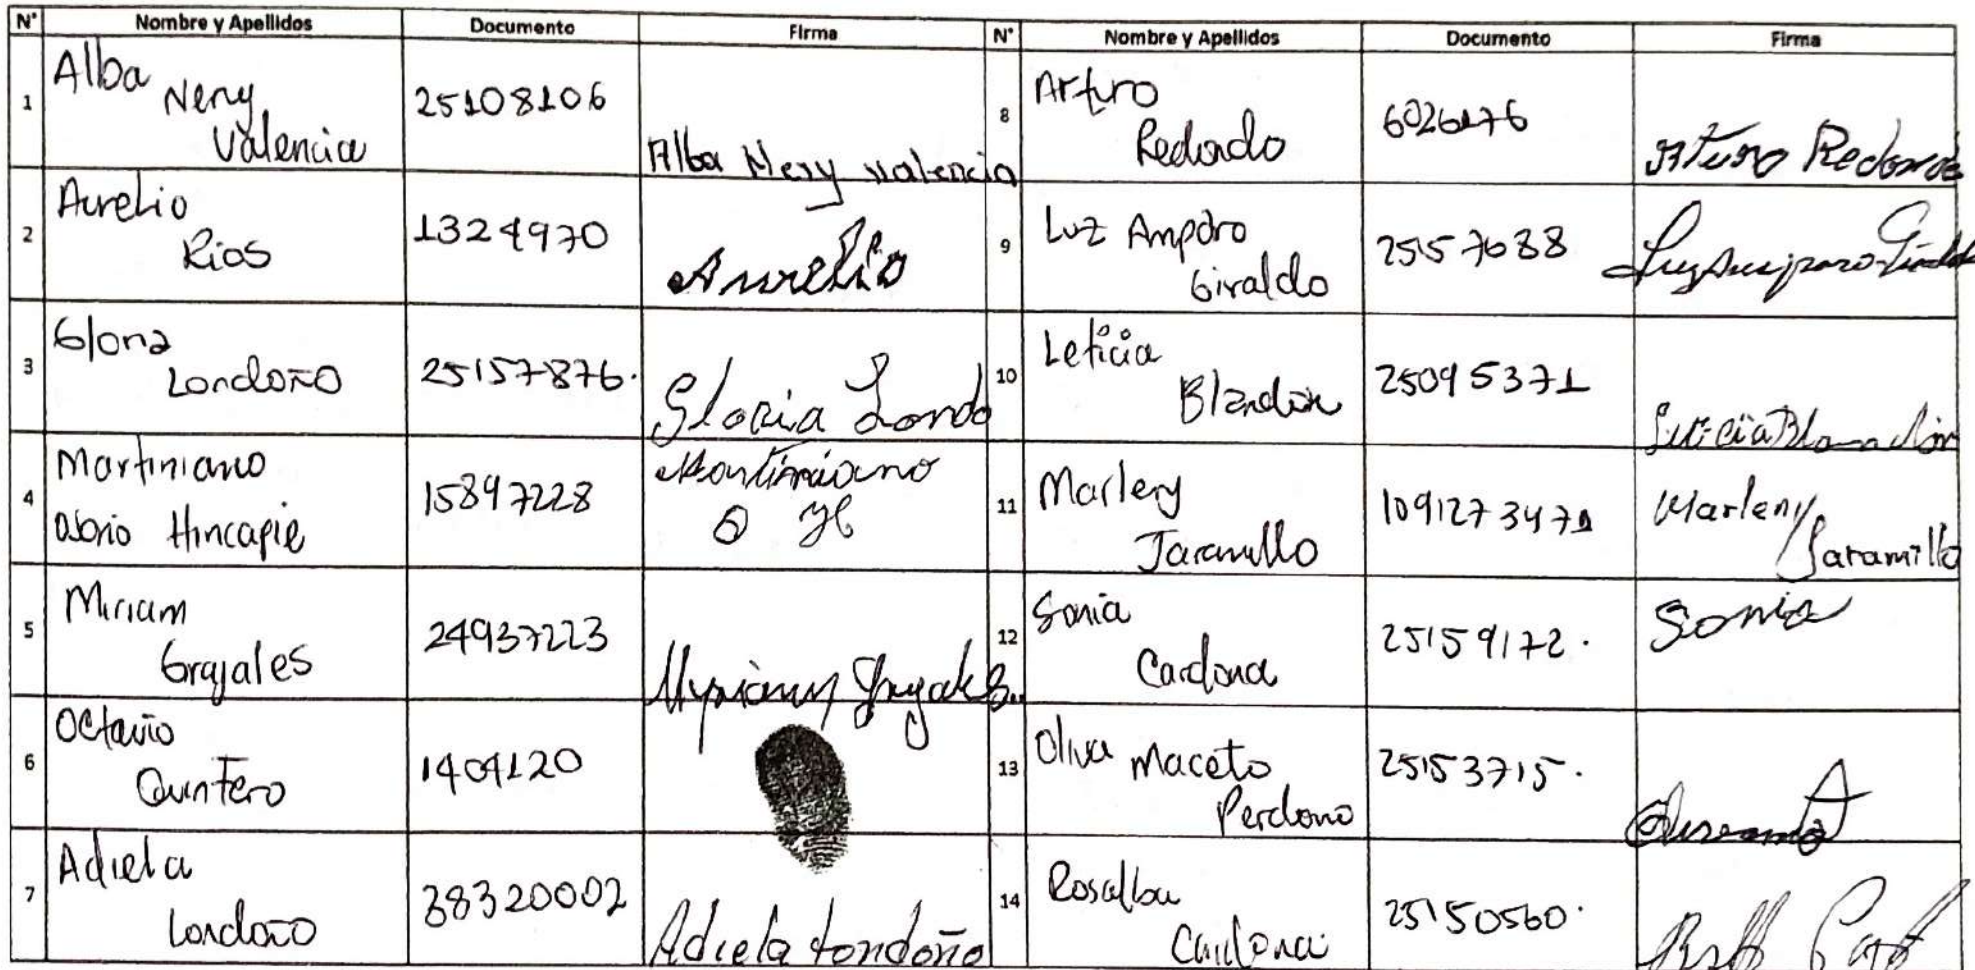 N° Nombre y Apellidos Documento Firma N° Nombre y Apellidos Documento Firma
1 Alba Nery Valencia 25108106 Alba Nery valencia
8 Arturo Redondo 6026176 Arturo Redondo
2 Aurelio Rios 1324970 Aurelio
9 Luz Amparo Giraldo 25157688 Luz Amparo Giraldo
3 Gloria Londoño 25157876. Gloria Londo
10 Leticia Blandon 25095371 Leticia Blandon
4 Martiniano Hincapie 15897228 Martiniano O H
11 Marleny Jaramillo 1091273471 Marleny Jaramillo
5 Miriam Grajales 24937223 Myriam Grajales.
12 Sonia Cardona 25159172. Sonia
6 Octavio Quintero 1404120
13 Oliva Maceto Perdomo 25153715.
7 Adiela Londoño 38320002 Adiela Londoño
14 Rosalba Cardona 25150560.